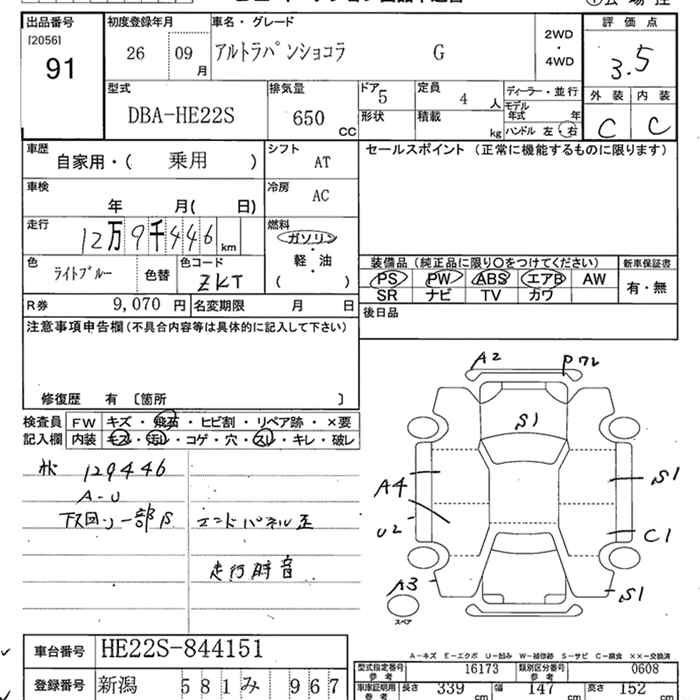 出品番号
[2056]
91
初度登録年月
26 09 月
車名・グレード
アルトラパンショコラ G
2WD
・
4WD
評価点
3.5
外装 内装
C C
型式
DBA-HE22S
排気量
650 CC
ドア 5
定員 4 人
形状
積載 kg
ディーラー・並行
モデル年式 年
ハンドル 左・右
車歴
自家用・( 乗用 )
シフト
AT
セールスポイント (正常に機能するものに限ります)
車検
年 月( 日)
冷房
AC
走行
12万9千446 km
燃料
ガソリン
軽・油
( )
色
ライトブルー
色替
色コード
ZKT
装備品 (純正品に限り○をつけてください)
PS PW ABS エアB AW
SR ナビ TV カワ
新車保証書
有・無
R券 9,070 円
名変期限 月 日
後日品
注意事項申告欄(不具合内容等は具体的に記入して下さい)
修復歴 有 〔箇所 〕
検査員
記入欄
FW キズ・飛石・ヒビ割・リペア跡・×要
内装 キズ・汚れ・コゲ・穴・スレ・キレ・破レ
129446
A-U
下回り一部S
エンドパネル歪
走行時音
A2
S1
A4
U2
A3
S1
C1
S1
スペア
車台番号 HE22S-844151
登録番号 新潟 581 み 967
A-キズ E-エクボ U-凹み W-補修跡 S-サビ C-腐食 ××-交換済
型式指定番号
参考
16173
類別区分番号
参考
0608
車庫証明用
参考
長さ 339 cm
幅 147 cm
高さ 152 cm